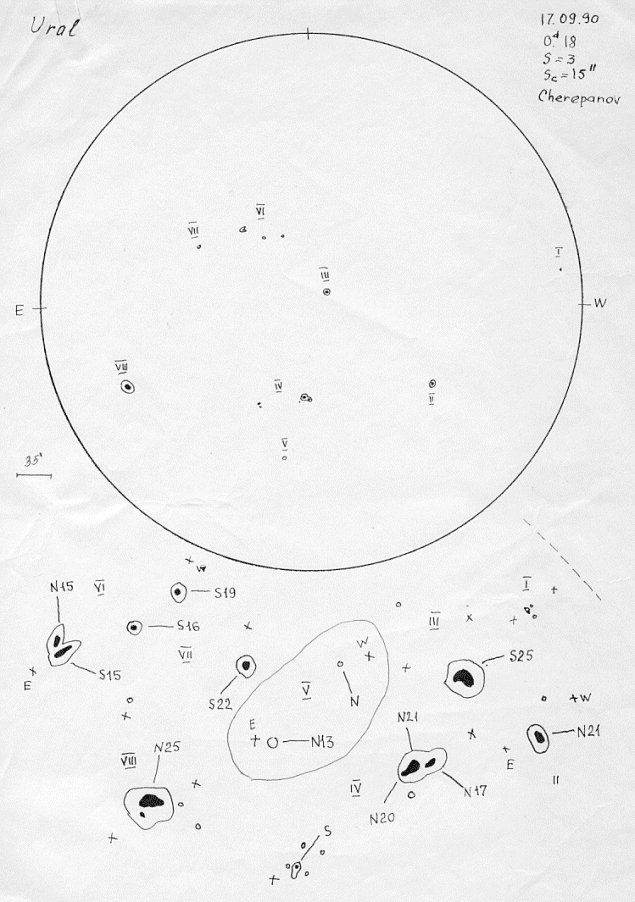 Ural
17.09.90
0.d 18
S = 3
Sc = 15"
Cherepanov
VI
VII
I
III
E
W
VIII
IV
II
V
35"
W
N15
VI
S19
I
S16
III
VII
W
S15
S25
E
S22
V
N
W
E
N13
N21
N21
VIII
N25
E
IV
N17
II
N20
S